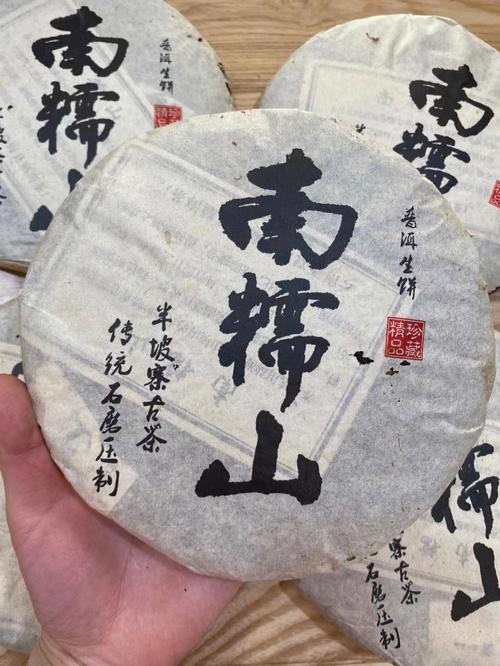 南糯山
普洱生饼
珍藏
精品
半坡寨古茶
传统石磨压制
南糯山
普洱生饼
珍藏
精品
南糯
糯山
寨古茶
石磨压制